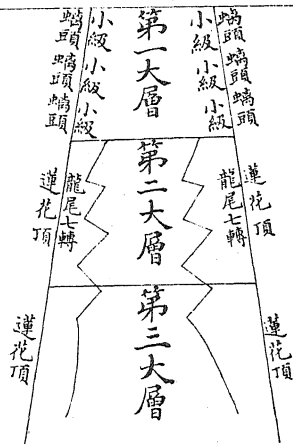 螭頭 螭頭 螭頭
小級 小級 小級
第一大層
小級 小級 小級
螭頭 螭頭 螭頭
蓮花頂
龍尾七轉
第二大層
龍尾七轉
蓮花頂
蓮花頂
第三大層
蓮花頂